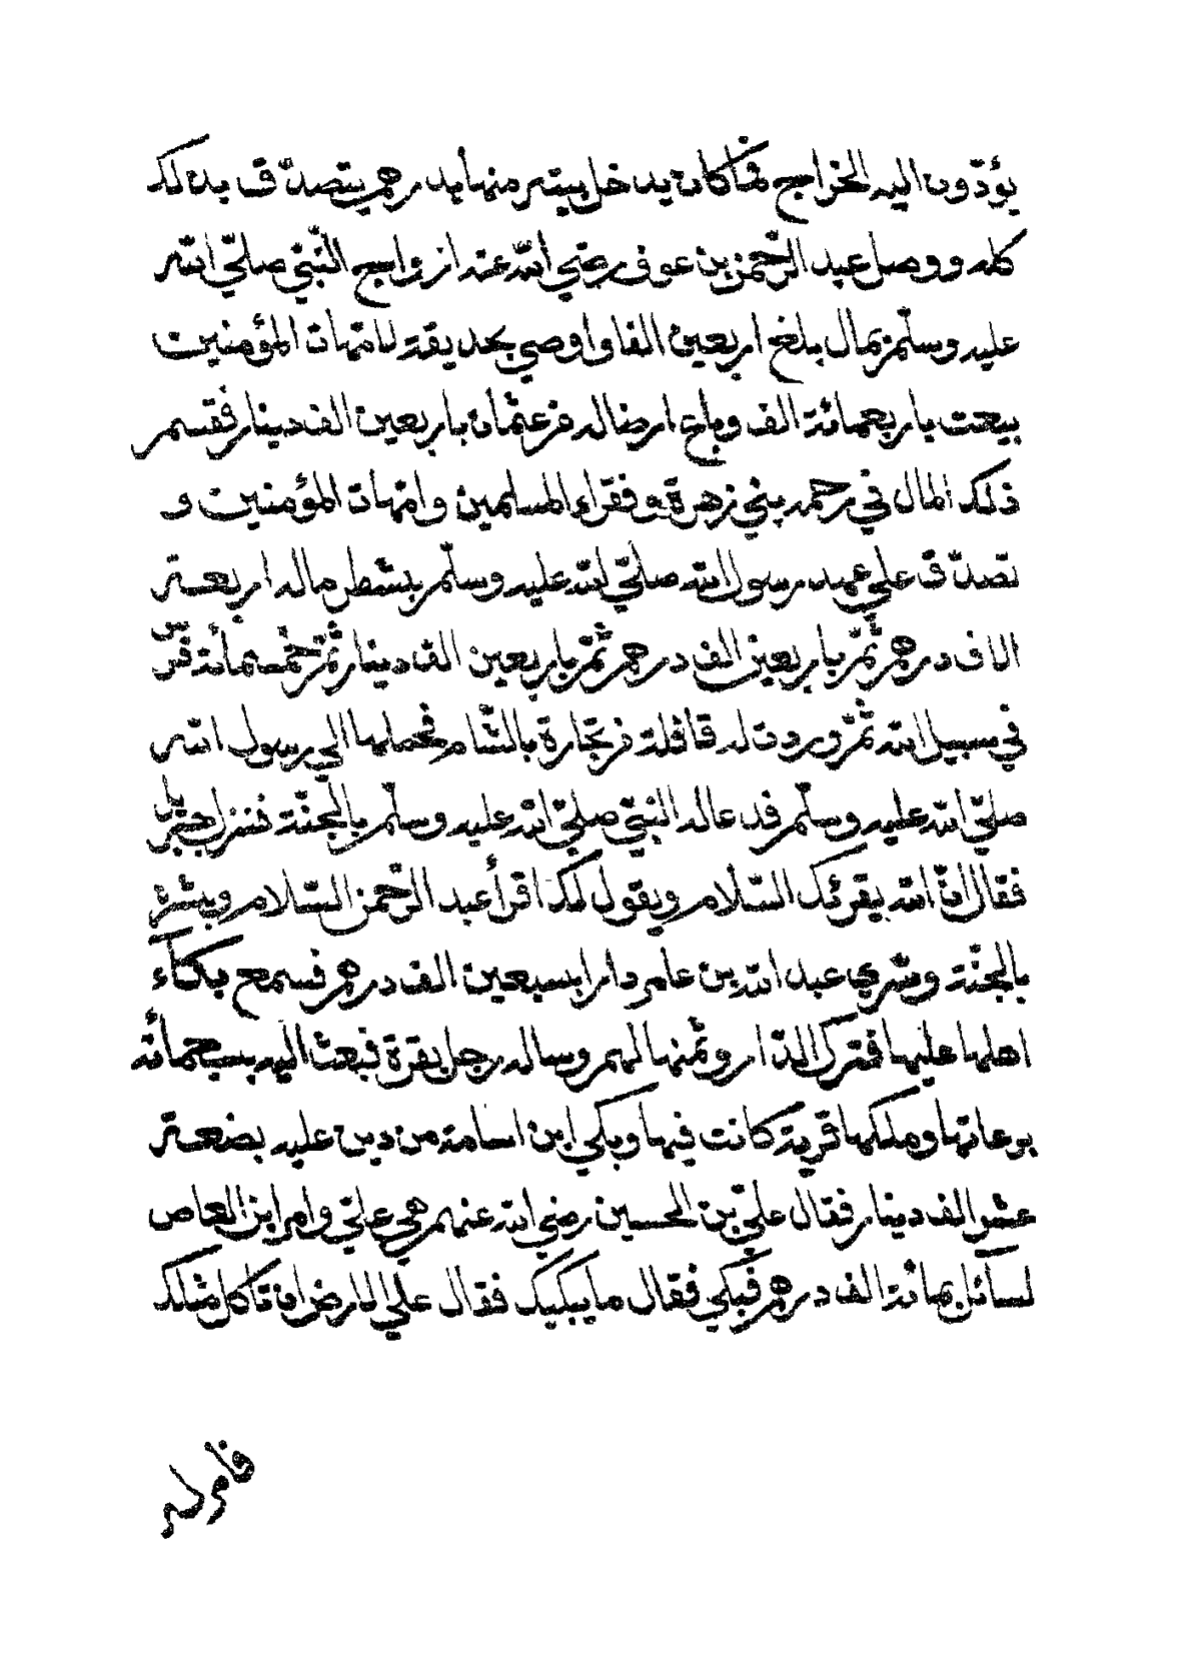 يؤدّون اليه الخراج فما كان يدخل بيته منها درهم يتصدّق بذلك
كله ووصل عبد الرّحمن بن عوف رضي الله عنه ازواج النّبيّ صلّى الله
عليه وسلّم بمال بلغ اربعين الفا واوصي بحديقة لامّهات المؤمنين
بيعت باربعمائة الف وباع ارضا له من عثمان باربعين الف دينار فقسم
ذلك المال في رحمه بني زهرة وفقراء المسلمين وامّهات المؤمنين و
تصدّق علي عهد رسول الله صلّى الله عليه وسلّم بشطر ماله اربعة
الاف درهم ثمّ باربعين الف درهم ثمّ باربعين الف دينار ثمّ خمسمائة فرس
في سبيل الله ثمّ وردت له قافلة من تجارة بالشّام فحملها الي رسول الله
صلّى الله عليه وسلّم فدعا له النبيّ صلّى الله عليه وسلّم بالجنّة فنزل جبريل
فقال انّ الله يقرئك السّلام ويقول لك اقرأ عبد الرّحمن السّلام وبشّره
بالجنّة وشري عبد الله بن عامر دارا بسبعين الف درهم فسمع بكاء
اهلها عليها فترك الدّار وثمنها لهم وساله رجل بقرة فبعث اليه بسبعمائة
برعاتها وملكها قرية كانت فيها وبكي ابن اسامة من دين عليه بضعة
عشر الف دينار فقال عليّ بن الحسين رضي الله عنهم هي عليّ وامر ابن العاص
لسائل بمائة الف درهم فبكي فقال ما يبكيك فقال علي الارض ان تاكل مثلك
فامر له